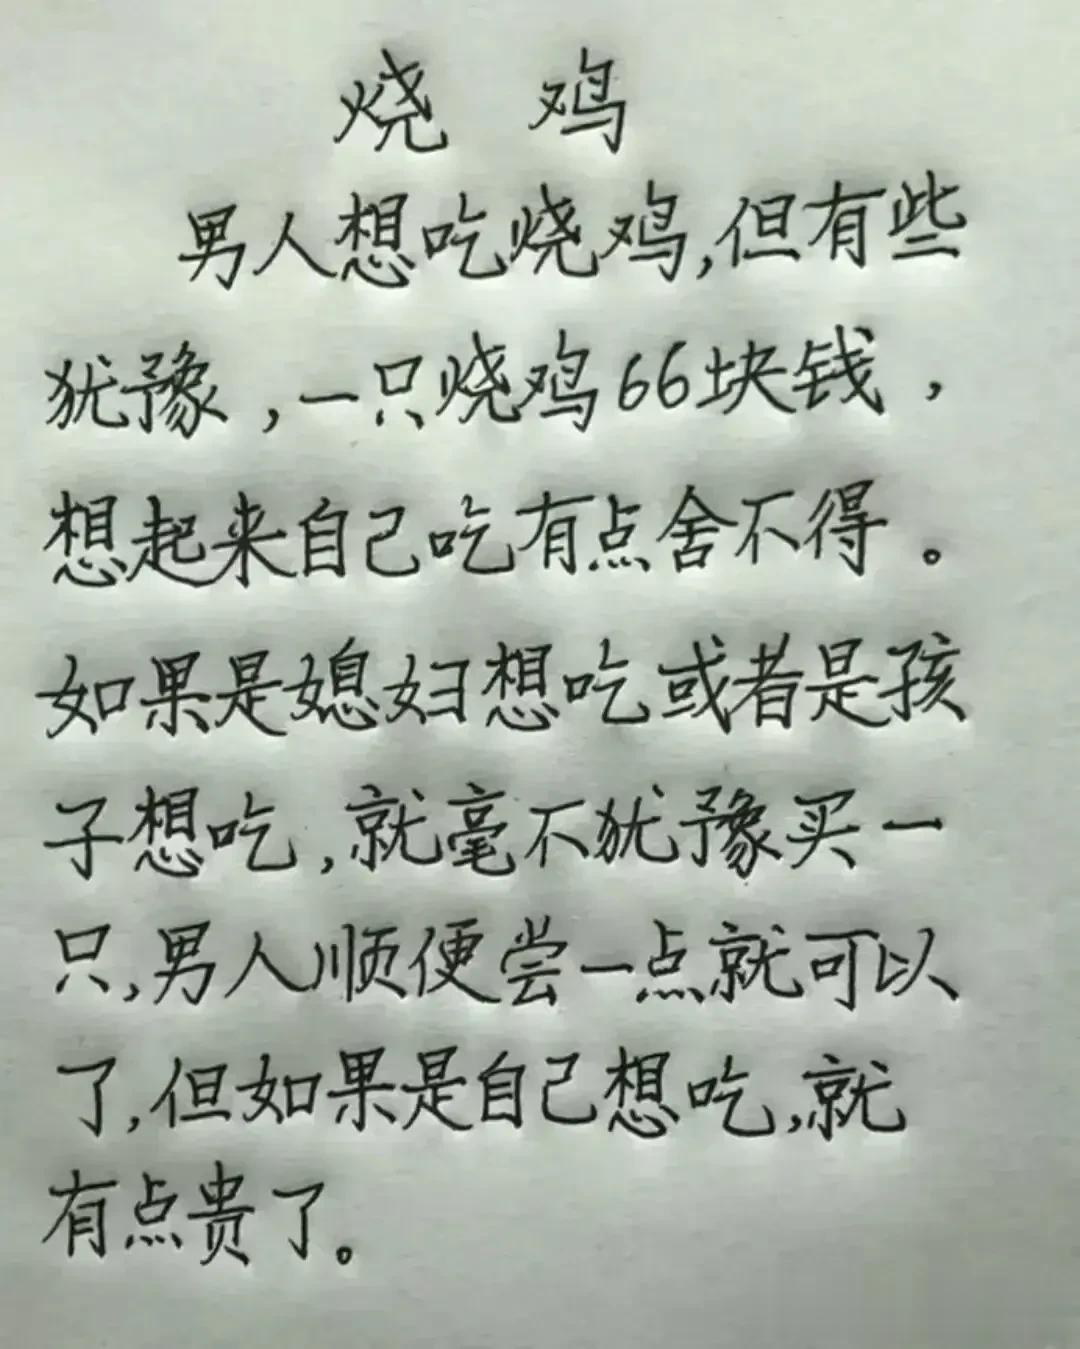 烧 鸡
男人想吃烧鸡,但有些
犹豫,一只烧鸡66块钱,
想起来自己吃有点舍不得。
如果是媳妇想吃或者是孩
子想吃,就毫不犹豫买一
只,男人顺便尝一点就可以
了,但如果是自己想吃,就
有点贵了。